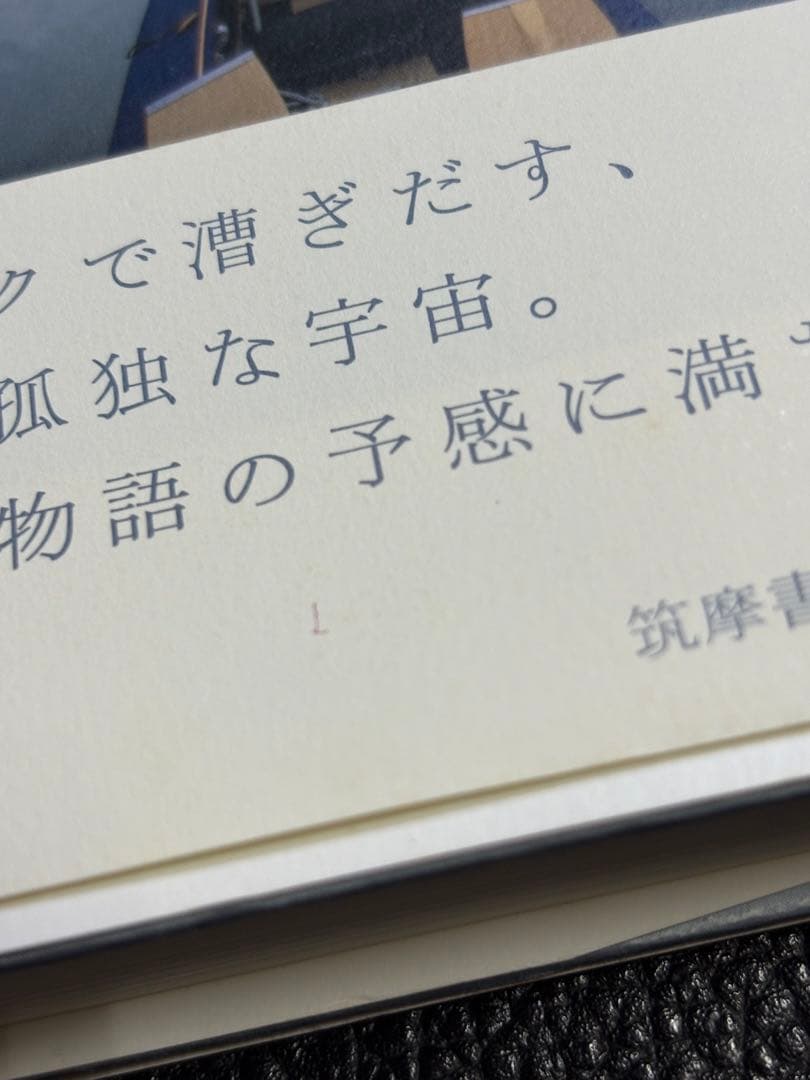 クで漕ぎだす、
孤独な宇宙。
物語の予感に満
筑摩書